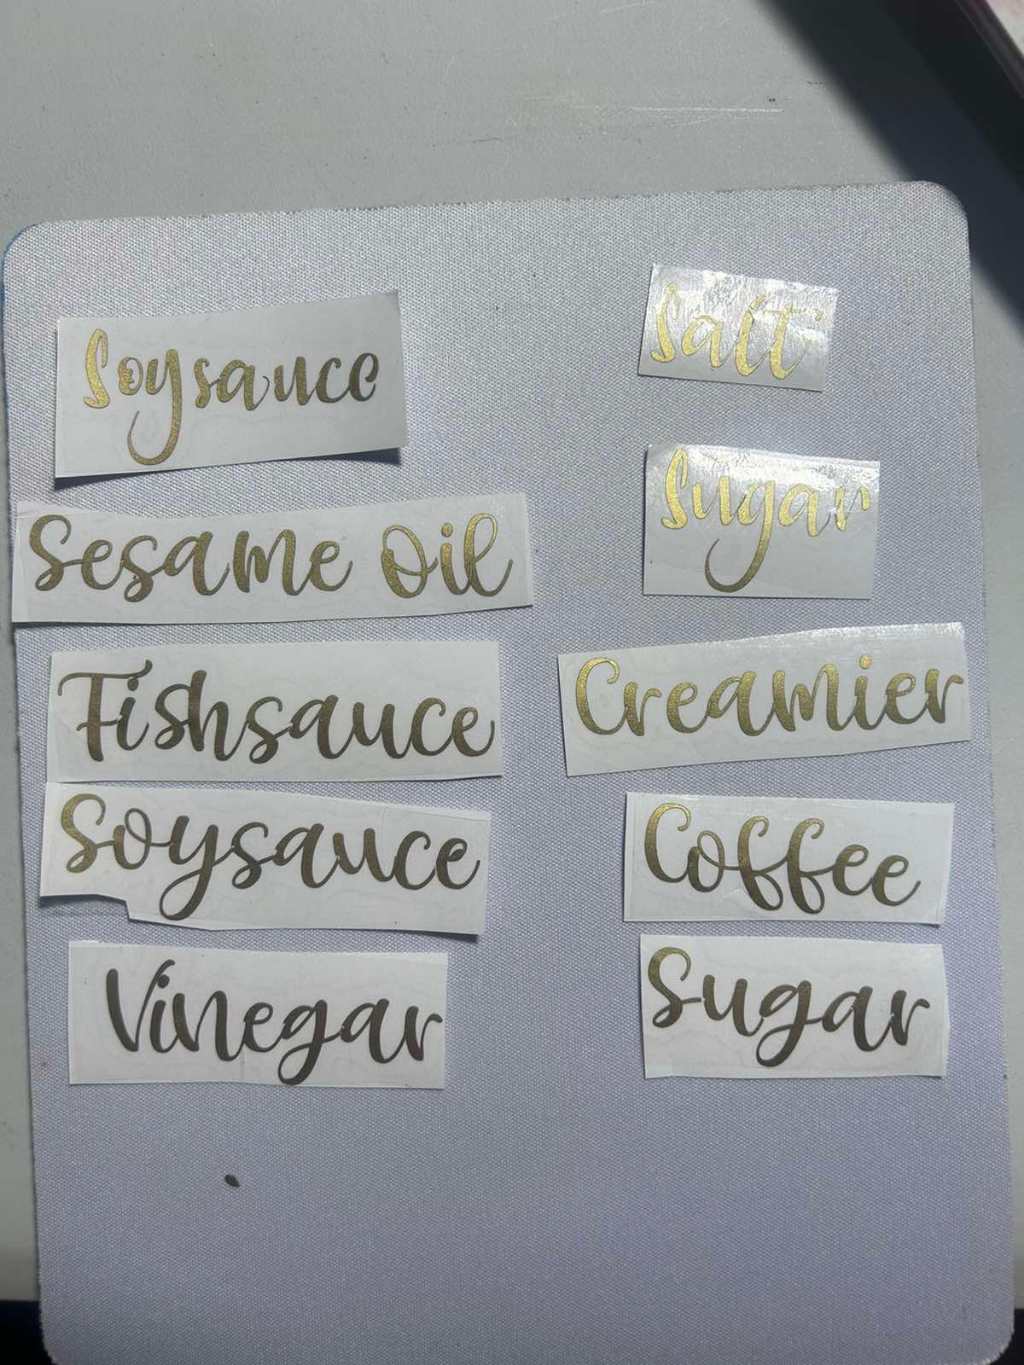 Soysauce
Sesame Oil
Fishsauce
Soysauce
Vinegar
Salt
Sugar
Creamier
Coffee
Sugar